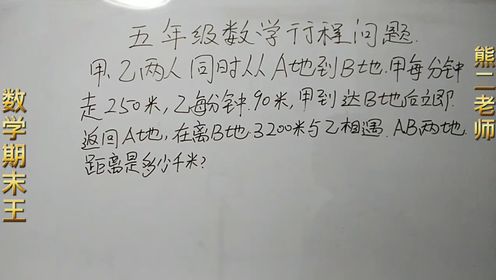 五年级数学行程问题.
甲、乙两人同时从A地到B地.甲每分钟
走250米,乙每分钟.90米,甲到达B地后立即
返回A地,在离B地.3200米与乙相遇.AB两地
距离是多少千米?
数学期末王
熊二老师